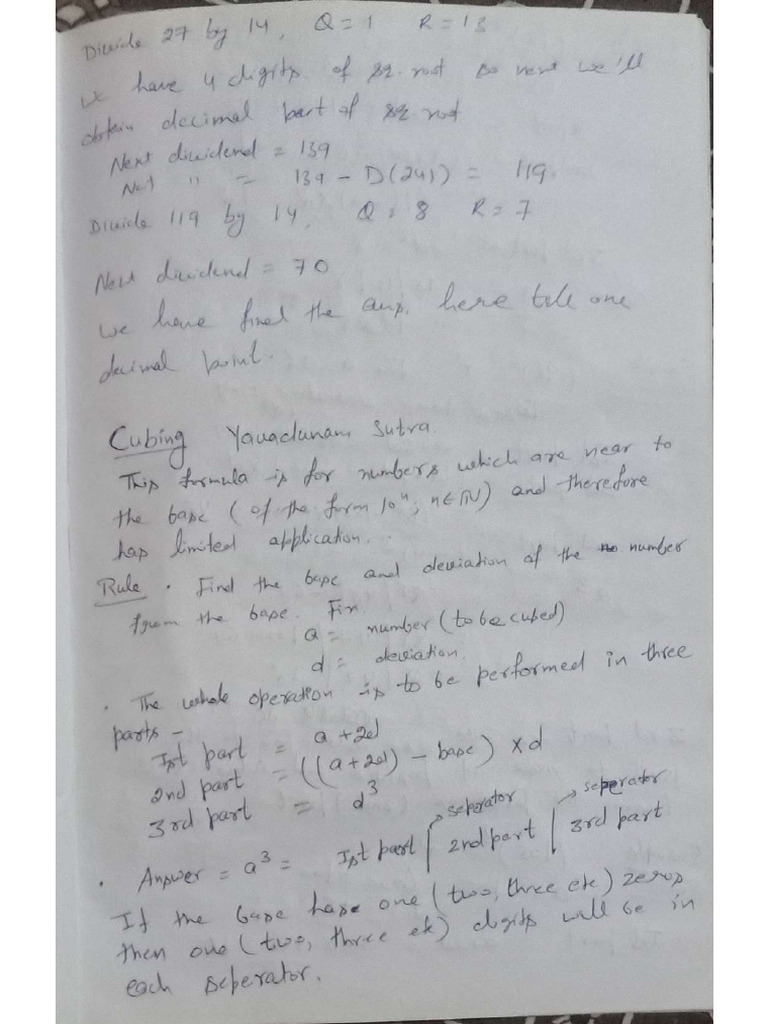 Divide 27 by 14, Q = 1 R = 13
we have 4 digits of sq. root so next we'll
obtain decimal part of sq root
Next dividend = 139
Net " = 139 - D(241) = 119
Divide 119 by 14, Q = 8 R = 7
Next dividend = 70
we have find the ans. here till one
decimal point.
Cubing Yavadunam Sutra.
This formula is for numbers which are near to
the base (of the form 10ⁿ; n∈ℕ) and therefore
has limited application.
Rule . Find the base and deviation of the number
from the base. Fix
a = number (to be cubed)
d = deviation.
. The whole operation is to be performed in three
parts -
Ist part = a + 2d
2nd part = ((a+2d) - base) × d
3rd part = d³
seperator seperator
. Answer = a³ = Ist part / 2nd part / 3rd part
If the base hase one (two, three etc) zeros
then one (two, three etc) digits will be in
each seperator.